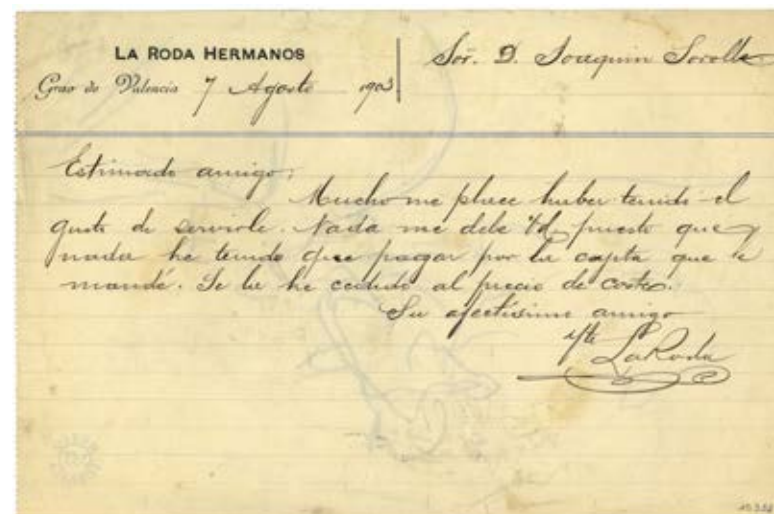 LA RODA HERMANOS
Sor. D. Joaquin Sorolla
Grao de Valencia 7 Agosto 1903
Estimado amigo;
Mucho me place haber tenido el
gusto de servirle. Nada me debe Vd. puesto que
nada he tenido que pagar por la cajita que le
mandé. Se la he cedido al precio de coste.
Su afectísimo amigo
Vte LaRoda